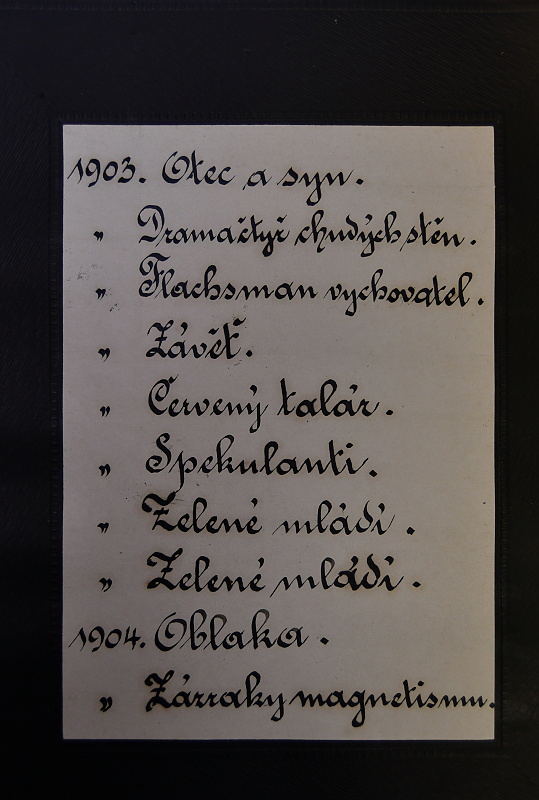 1903. Otec a syn.
„ Drama čtyř chudých stěn.
„ Flachsman vychovatel.
„ Závěť.
„ Červený talár.
„ Spekulanti.
„ Zelené mládí.
„ Zelené mládí.
1904. Oblaka.
„ Zázraky magnetismu.